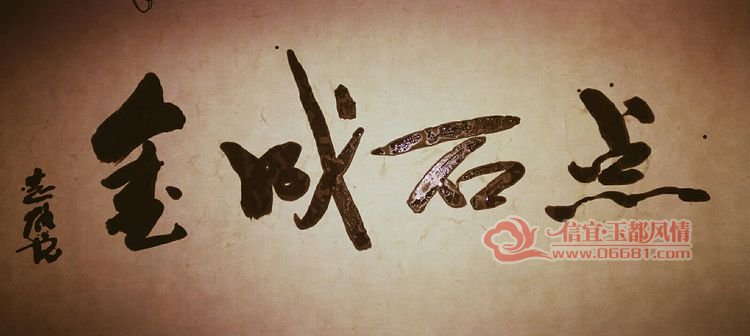 点石成金
信宜·玉都风情
www.06681.com